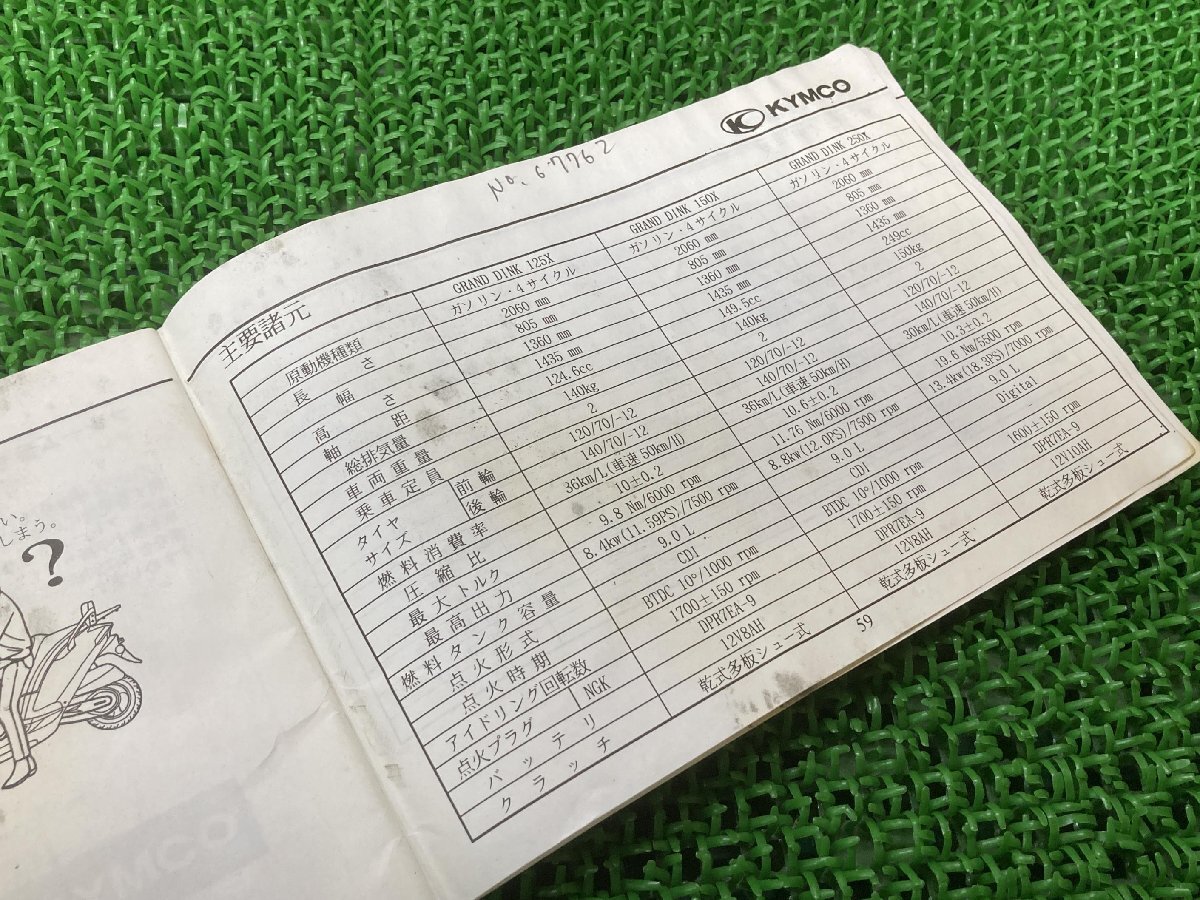 い。
しまう。
?
KYMCO
No. 67762
KYMCO
主要諸元
原動機種類 GRAND DINK 125X GRAND DINK 150X GRAND DINK 250X
ガソリン・4サイクル ガソリン・4サイクル ガソリン・4サイクル
長さ 2060 mm 2060 mm 2060 mm
幅 805 mm 805 mm 805 mm
高さ 1360 mm 1360 mm 1360 mm
軸距 1435 mm 1435 mm 1435 mm
総排気量 124.6cc 149.5cc 249cc
車両重量 140kg 140kg 150kg
乗車定員 2 2 2
タイヤサイズ 前輪 120/70/-12 120/70/-12 120/70/-12
後輪 140/70/-12 140/70/-12 140/70/-12
燃料消費率 36km/L(車速50km/H) 36km/L(車速50km/H) 30km/L(車速50km/H)
圧縮比 10±0.2 10.6±0.2 10.3±0.2
最大トルク 9.8 Nm/6000 rpm 11.76 Nm/6000 rpm 19.6 Nm/5500 rpm
最高出力 8.4kw(11.59PS)/7500 rpm 8.8kw(12.0PS)/7500 rpm 13.4kw(18.3PS)/7000 rpm
燃料タンク容量 9.0 L 9.0 L 9.0 L
点火形式 CDI CDI Digital
点火時期 BTDC 10°/1000 rpm BTDC 10°/1000 rpm
アイドリング回転数 1700±150 rpm 1700±150 rpm 1600±150 rpm
点火プラグ NGK DPR7EA-9 DPR7EA-9 DPR7EA-9
バッテリ 12V8AH 12V8AH 12V10AH
クラッチ 乾式多板シュー式 乾式多板シュー式 乾式多板シュー式
59